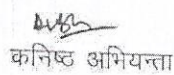 कनिष्ट अभियन्ता